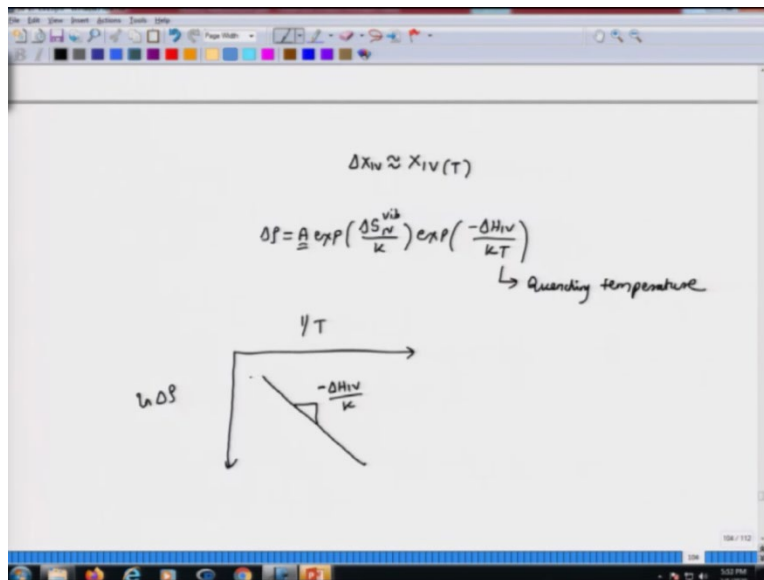 File Edit View Insert Actions Tools Help
Page Width
ΔxIV ≈ xIV(T)
Δρ = A exp(ΔSIV^vib / K) exp(-ΔHIV / KT)
↳ Quenching temperature
1/T
ln Δρ
-ΔHIV / K
104 / 112
104
5:52 PM